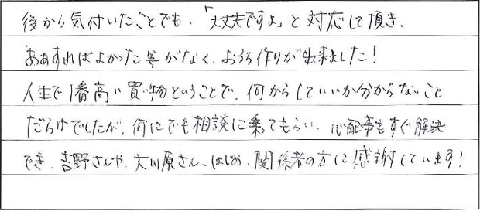 後から気付いたことでも、「大丈夫ですよ」と対応して頂き、
ああすればよかった等がなく、おうち作りが出来ました!
人生で1番高い買物ということで、何からしていいか分からないこと
だらけでしたが、何にでも相談に乗てもらい、心配事もすぐ解決
でき、吉野さんや、大川原さん、はじめ、関係者の方に感謝しています!